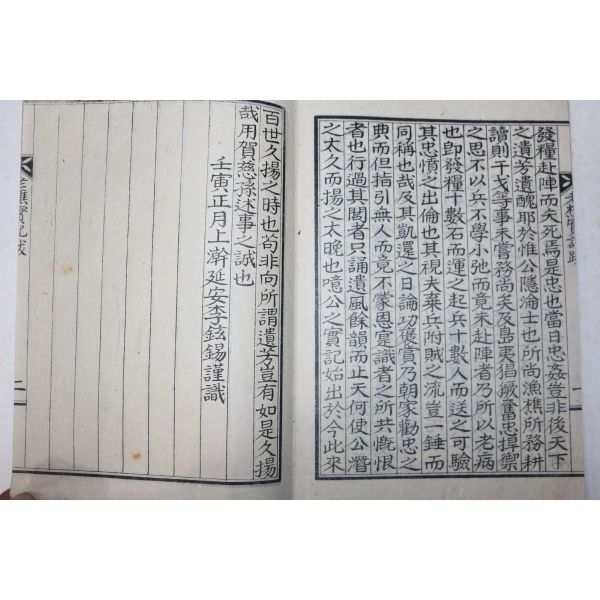 發糧赴陣而矢死焉是忠也當日忠姦豈非後天下
之遺芳遺醜耶於惟公隱淪士也所尚漁樵所務耕
讀則干戈等事未嘗務尚矣及島夷猖獗奮忠掉禦
之思不以兵不學小弛而竟未赴陣者乃所以老病
也卽發糧十數石而運之起兵十數人而送之可驗
其忠憤之出倫也其視夫棄兵附賊之流豈一錘而
同稱也哉及其凱還之日論功褒賞乃朝家勸忠之
典而但指引無人而竟不蒙恩寔識者之所共慨恨
者也行過其閭者只誦遺風餘韻而止天何使公㬱
之太久而揚之太晩也噫公之實記始出於今此來
百世久揚之時也苟非向所謂遺芳豈有如是久揚
哉用賀慈孫述事之誠也
壬寅正月上澣延安李鉉錫謹識
樵實記跋
二